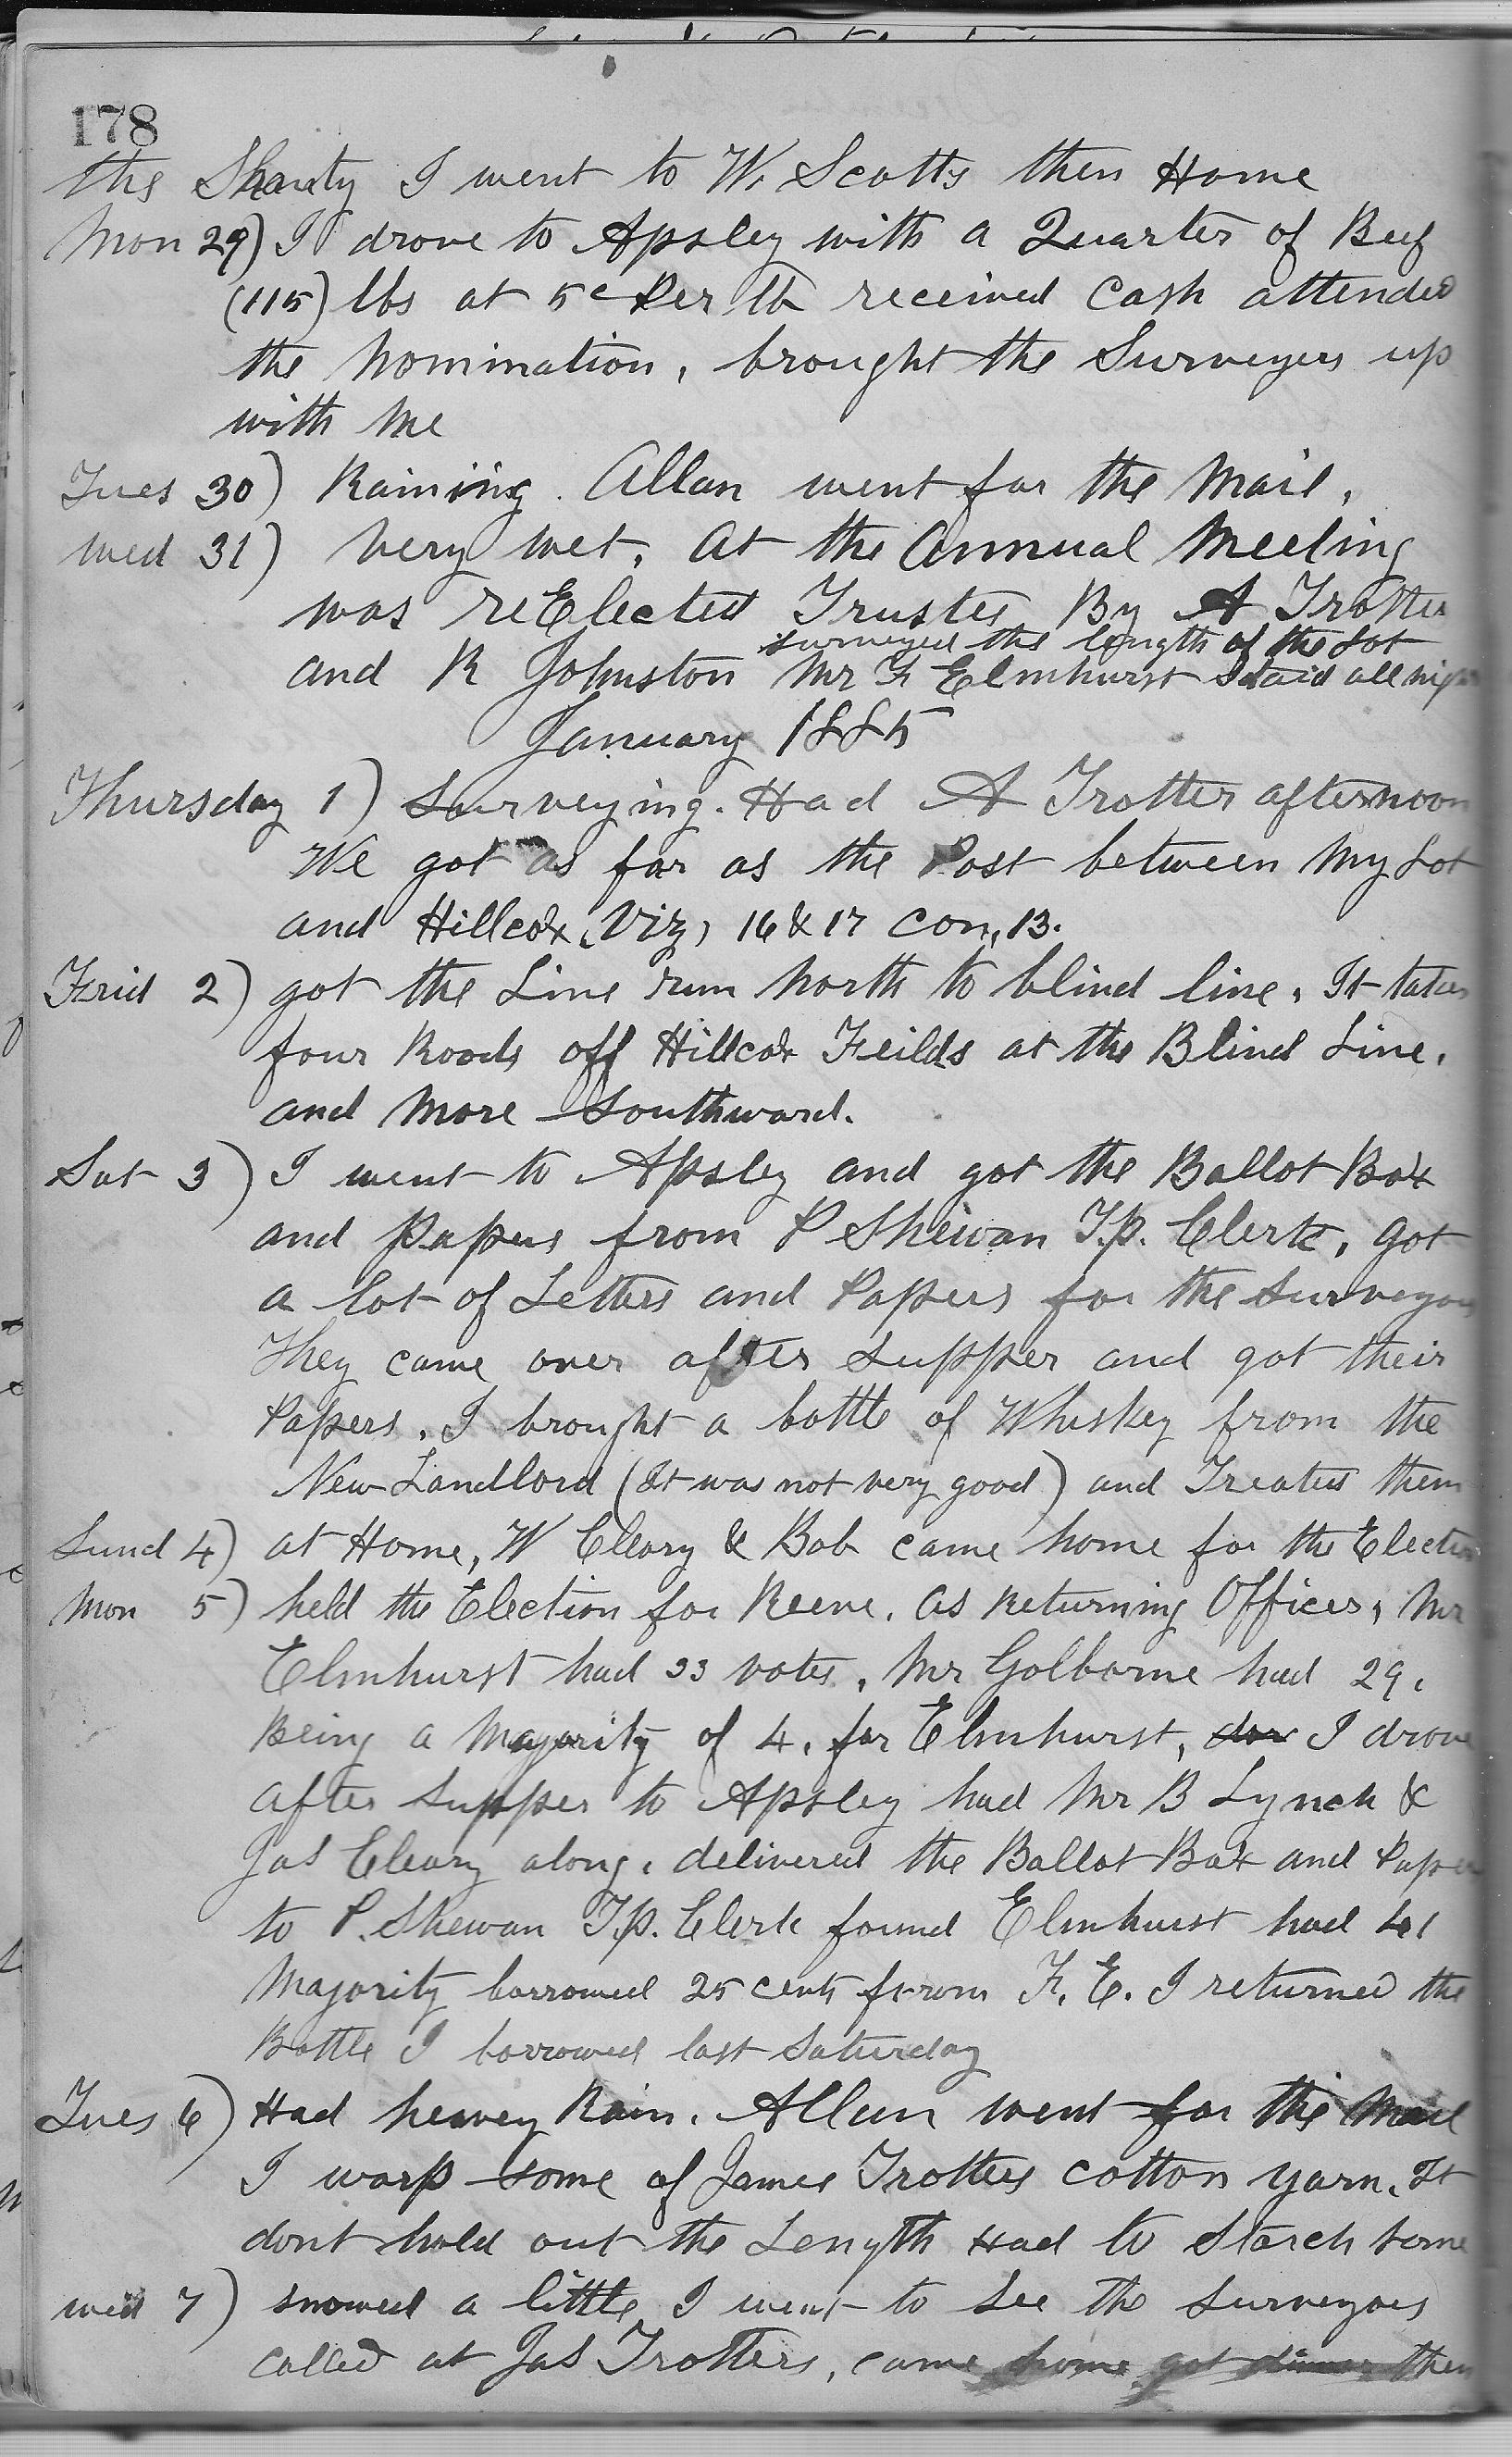 178
the Shanty I went to W. Scotts then Home
Mon 29) I drove to Apsley with a Quarter of Beef
(115) lbs at 5c Per lb received Cash attended
the Nomination, brought the Surveyers up
with me
Tues 30) Raining. Allan went for the Mail,
Wed 31) Very wet, at the Annual Meeting
was reElected Trustee By A Trotter
surveyed the length of the Lot
and R Johnston Mr F Elmhurst Staid all night
January 1885
Thursday 1) Surveying. Had A Trotter afternoon
We got as far as the Post between My Lot
and Hillcox, Viz, 16 & 17 Con, 13.
Frid 2) got the Line run North to blind line, It takes
four Roods off Hillcox Feilds at the Blind Line.
and More Southward.
Sat 3) I went to Apsley and got the Ballot Box
and Papers from P Shewan T.p. Clerk, got
a lot of Letters and Papers for the Surveyors
They came over after supper and got their
Papers, I brought a bottle of Whiskey from the
New Landlord (It was not very good) and Treated them
Sund 4) at Home, W Cleary & Bob came home for the Election
Mon 5) held the Election for Reeve, as Returning Officer, Mr
Elmhurst had 33 votes, Mr Golborne had 29,
Being a Majority of 4, for Elmhurst, I drove
after supper to Apsley had Mr B Lynch &
Jas Cleary along, delivered the Ballot Box and Papers
to P. Shewan T.p. Clerk found Elmhurst had 41
Majority borrowed 25 cents from F. E. I returned the
Bottle I borrowed last Saturday
Tues 6) Had heavey Rain, Allan went for the Mail
I warp some of James Trotters cotton yarn, It
dont hold out the Length Had to Starch some
Wed 7) snowed a little I went to see the surveyors
called at Jas Trotters, came home got dinner then